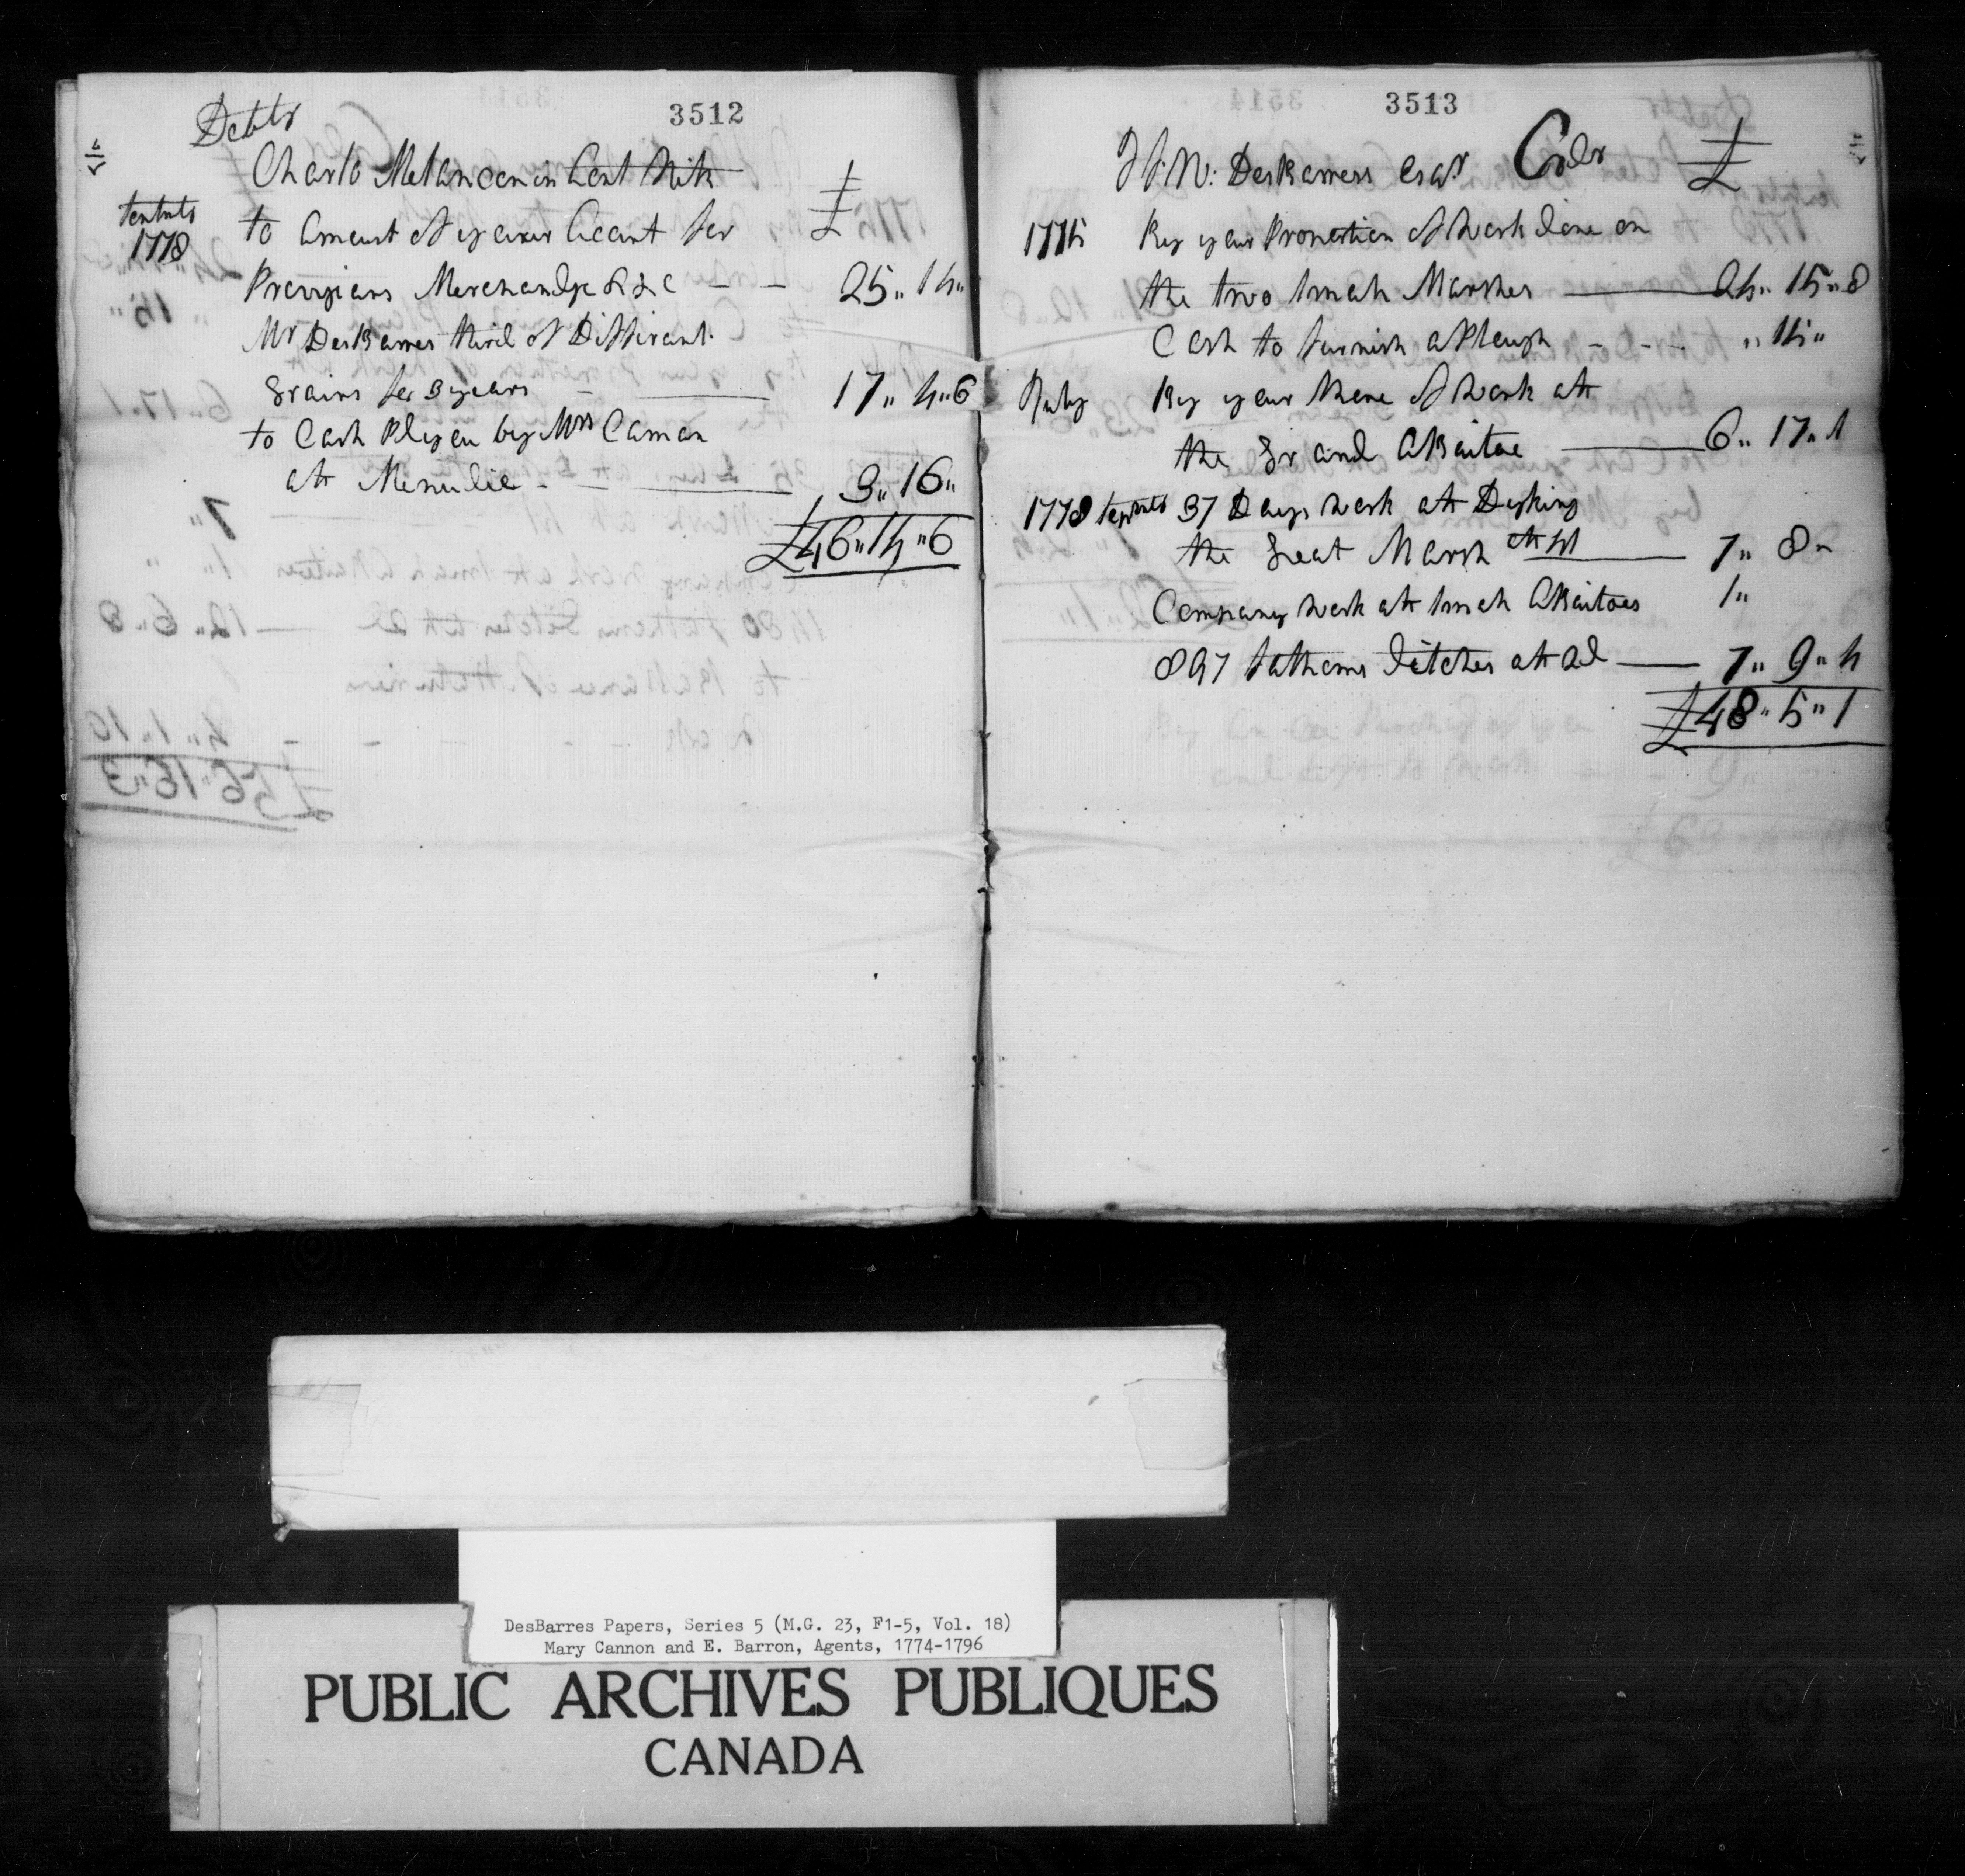 3512
Debtr
Charls Melancon in Cont With
£
tembuto
1778
to Amount of your Acount for
Provizians Merchandze & & c - - 25„ 14„
Mr DesBarres third of Diffirant
Grains for 3 years - 17„ 4„6
to Cash Pleyen by Mrs Caman
att Menudie - 3„ 16„
£46„14„6
3513
J F W: DesBarress Esqr Credr £
1775 By your Proportion of Work done on
the two Smah Marshes 24„ 15„8
Cash to furnish a Plaugh - - - „ 15„
July By your Share of Work att
the Grand ABoitoe 6„ 17„1
1778 37 Days Work att Dyking
the Great Marsh att 4s 7„ 8„
Company Work att Smah ABoitoes 1„
897 fathoms ditches att 2d 7„ 9„4
£48„5„1
DesBarres Papers, Series 5 (M.G. 23, F1-5, Vol. 18)
Mary Cannon and E. Barron, Agents, 1774-1796
PUBLIC ARCHIVES PUBLIQUES
CANADA